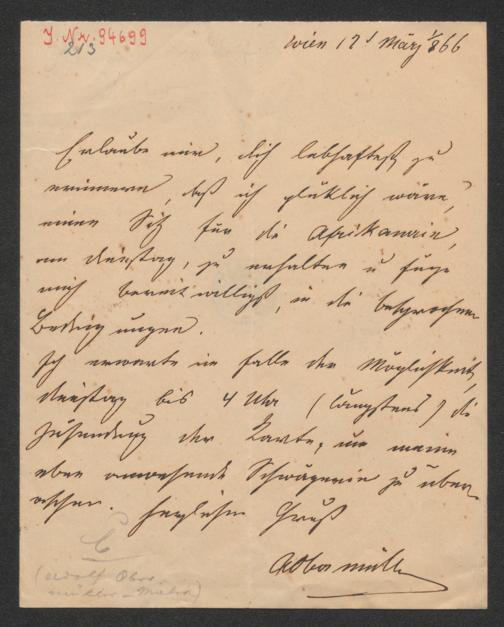 J. Nr. 94699
213
Wien 17t März 1866
Erlaube mir, dich lebhaftest zu
erinnern, daß ich glüklich wäre,
einen Sitz für die Afrikanerin,
am dienstag, zu erhalten u füge
mich bereitwilligst, in die besprochenen
Bedingungen.
Ich erwarte im falle der Möglichkeit,
dienstag bis 4 Uhr (längstens) die
Zusendung der Karte, um meine
eben anwesende Schwägerin zu über
raschen. herzlichen Gruß
AObermüller
(Adolf Ober
müller